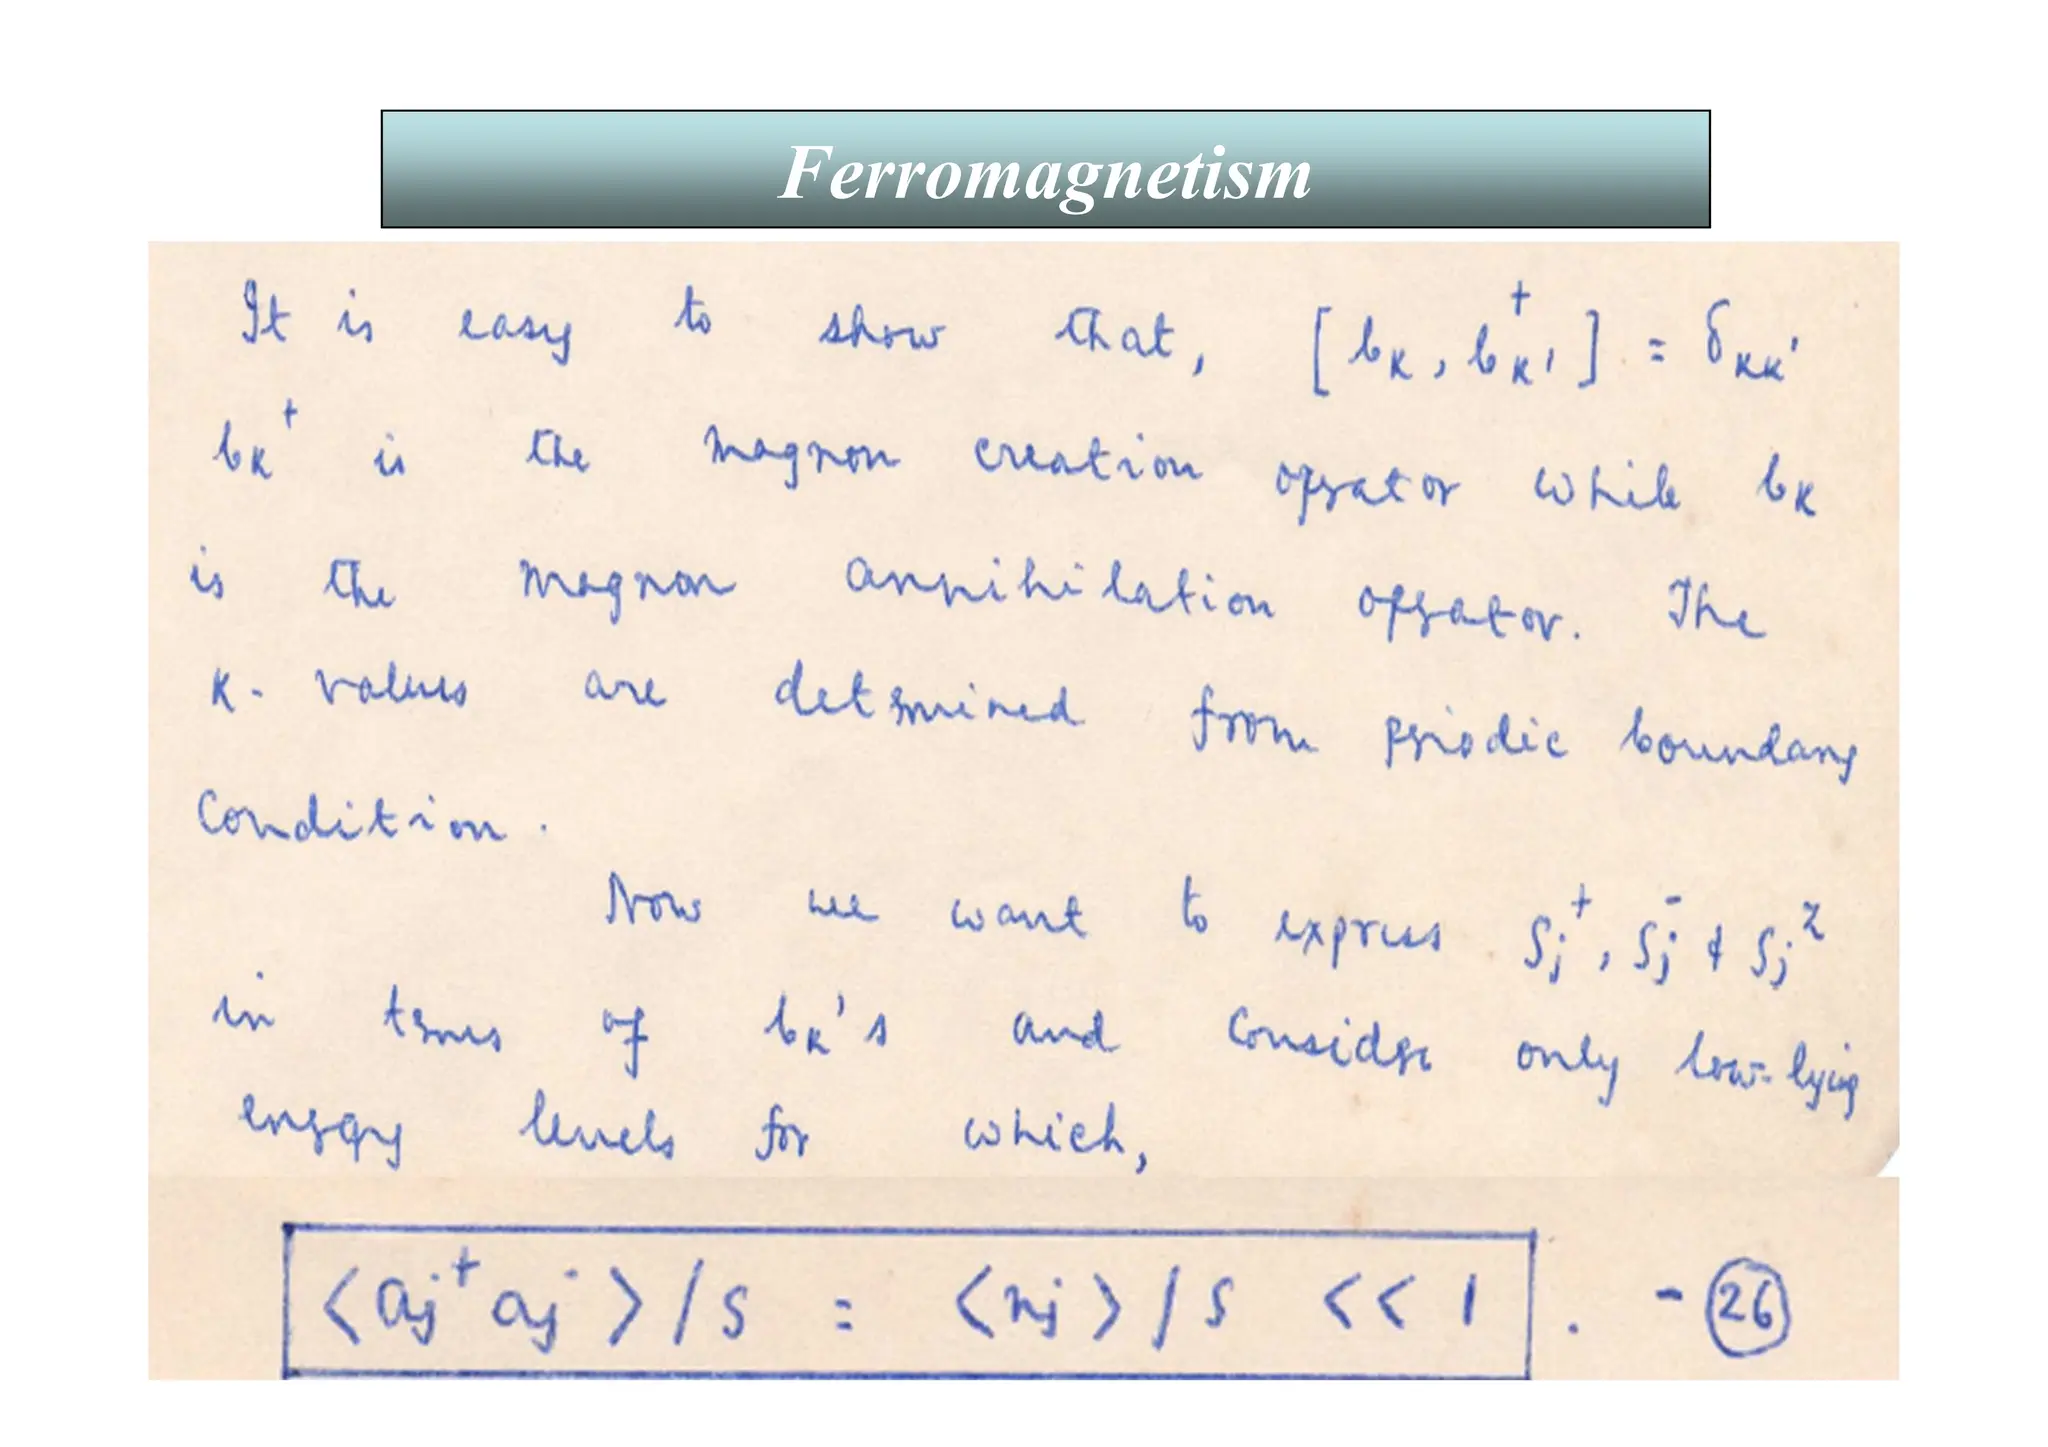 Ferromagnetism
It is easy to show that, [b_K, b_K'^+] = δ_KK'
b_K^+ is the magnon creation operator while b_K
is the magnon annihilation operator. The
K-values are determined from periodic boundary
Condition.
Now we want to express S_j^+, S_j^- & S_j^z
in terms of b_K's and Consider only low-lying
energy levels for which,
<a_j^+ a_j>/S = <n_j>/S << 1. - (26)